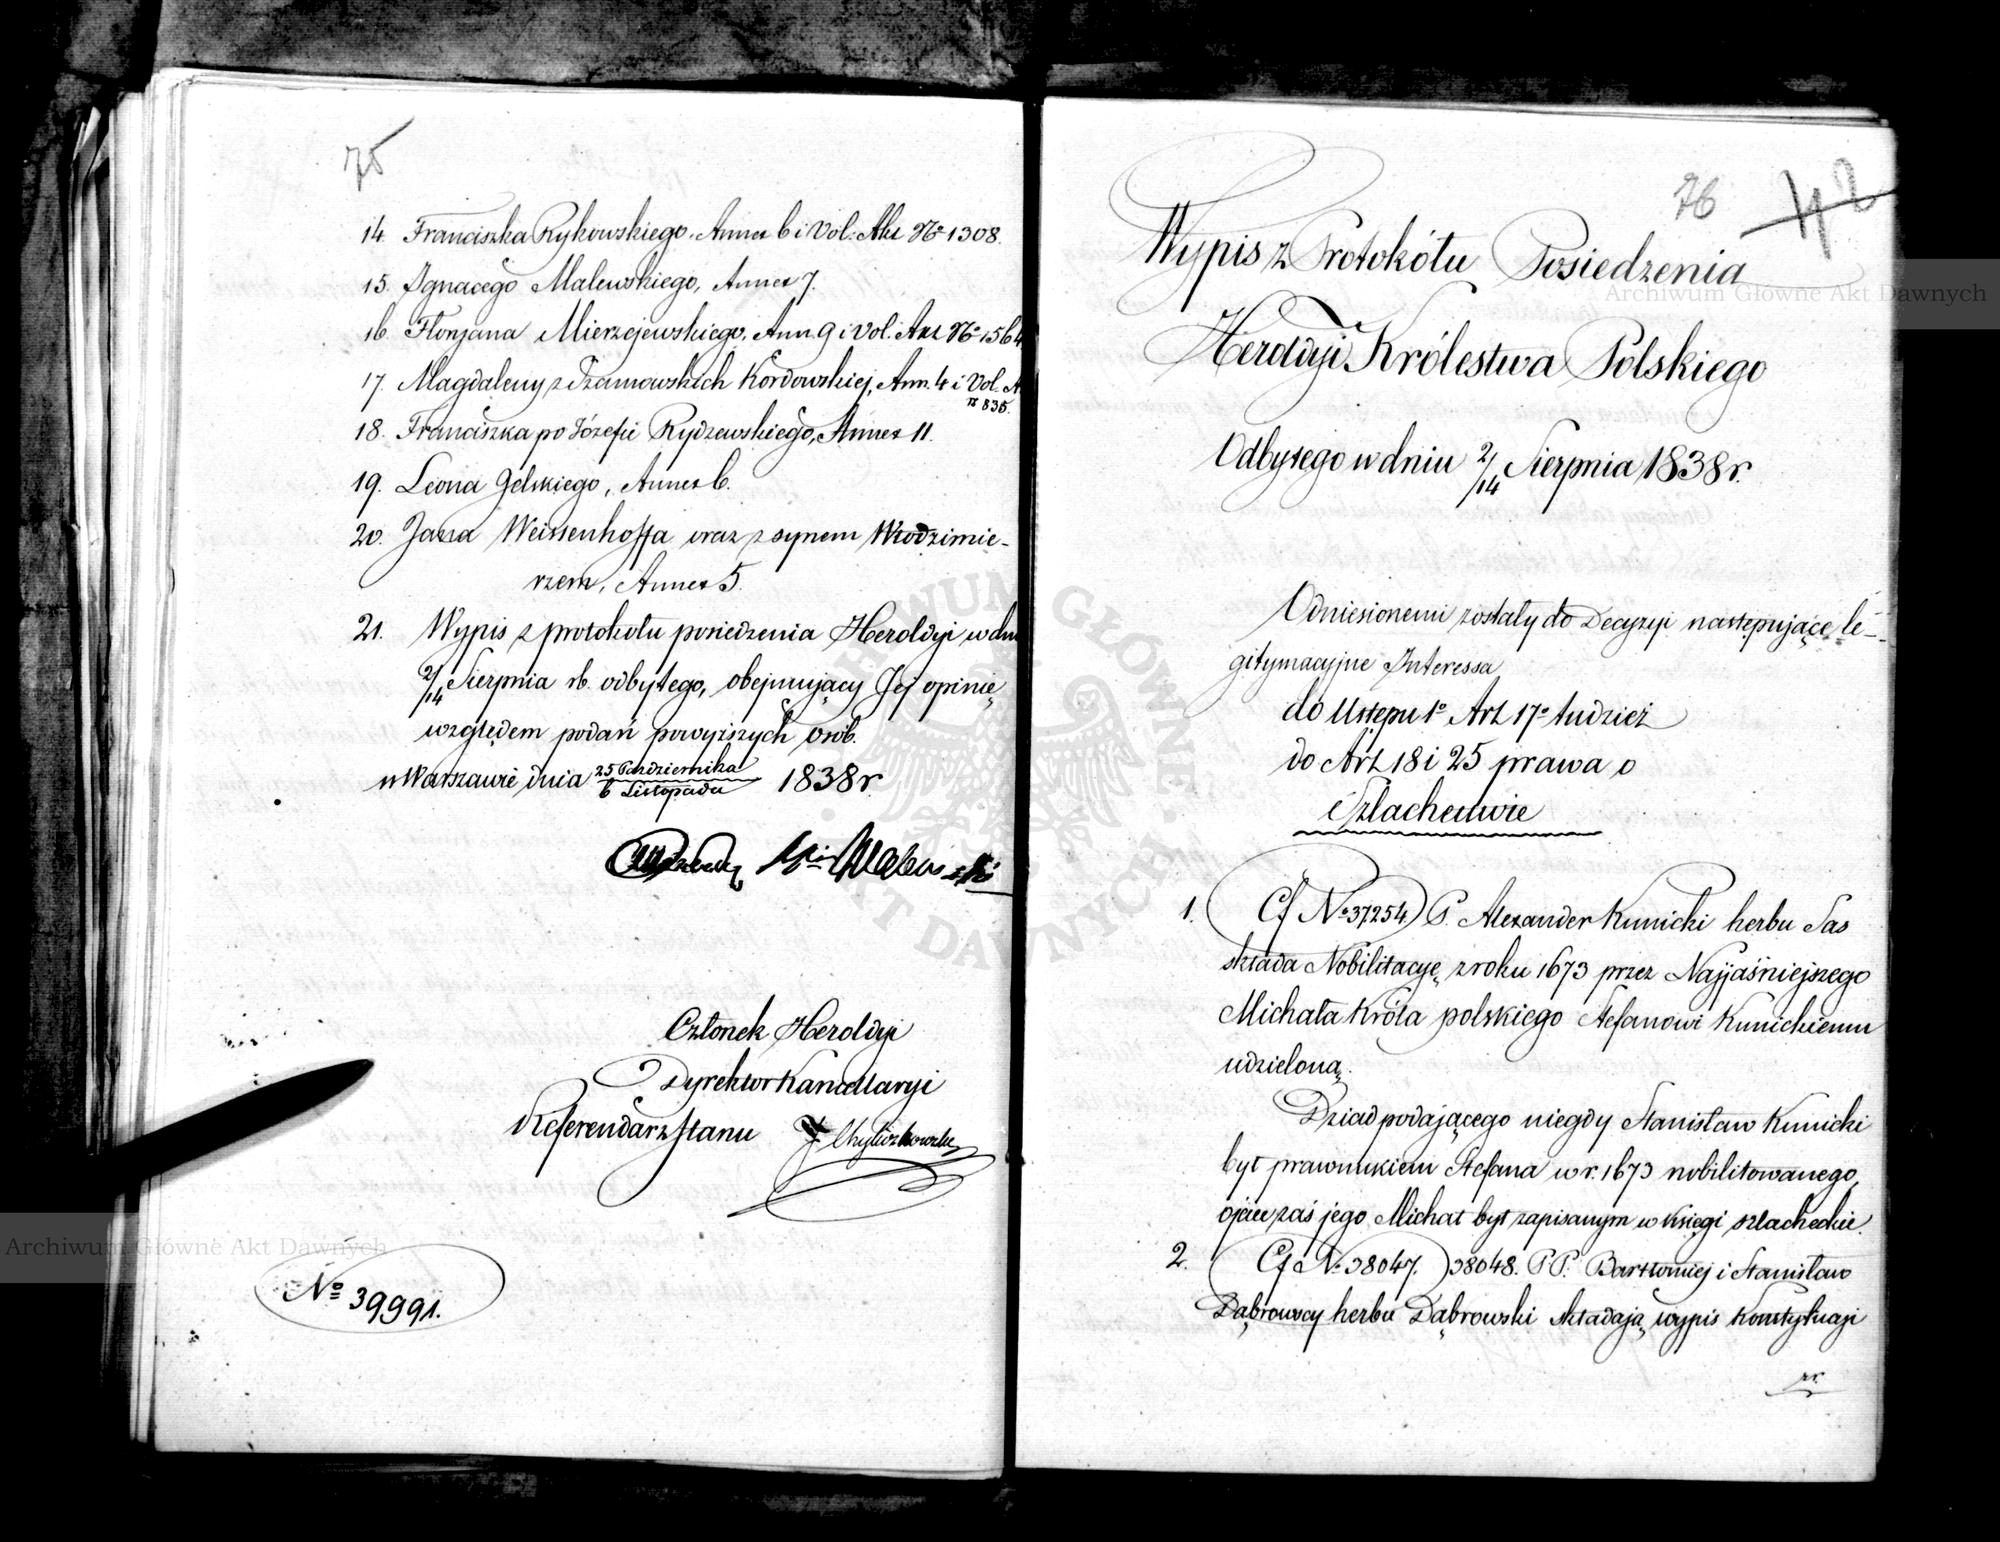 75
14. Franciszka Rykowskiego. Annex 6 i Vol: Akt No 1308.
15. Ignacego Malewskiego, Annex 7.
16. Florjana Mierzejewskiego. Ann. 9 i Vol. Akt No 1564
17. Magdaleny z Kordowskiej, Ann. 4 i Vol. A
N 835.
18. Franciszka po Józefie Rydzewskiego, Annex 11.
19. Leona Gelskiego, Annex 6.
20. Jana Weissenhoffa wraz z synem Włodzimie-
rzem, Annex 5.
21. Wypis z protokołu posiedzenia Heroldyi w dniu
2/14 Sierpnia rb. odbytego, obejmujący Jej opinię
względem podań powyższych osób.
w Warszawie dnia 25 Października / 6 Listopada 1838 r.
Członek Heroldyi
Dyrektor Kancellaryi
Referendarz Stanu
No 39991.
76
42
Wypis z Protokółu Posiedzenia
Heroldyi Królestwa Polskiego
Odbytego w dniu 2/14 Sierpnia 1838 r.
Odniesionemi zostały do Decyzyi następujące le-
gitymacyjne Interessa
do Ustępu 1o Art 17o tudzież
do Art 18 i 25 prawa o
Szlachectwie
1. Cf No 37254 P. Alexander Kunicki herbu Sas
składa Nobilitacyę z roku 1673 przez Najjaśniejszego
Michała Króla polskiego Stefanowi Kunickiemu
udzieloną.
Dziad podającego niegdy Stanisław Kunicki
był prawnukiem Stefana w r. 1673 nobilitowanego,
ojciec zaś jego Michał był zapisanym w Księgi szlacheckie.
2. Cf No 38047. 38048. P.P. Bartłomiej i Stanisław
Dąbrowscy herbu Dąbrowski składają wypis Konstytucyi
Archiwum Główne Akt Dawnych
Archiwum Główne Akt Dawnych
ARCHIWUM GŁÓWNE AKT DAWNYCH